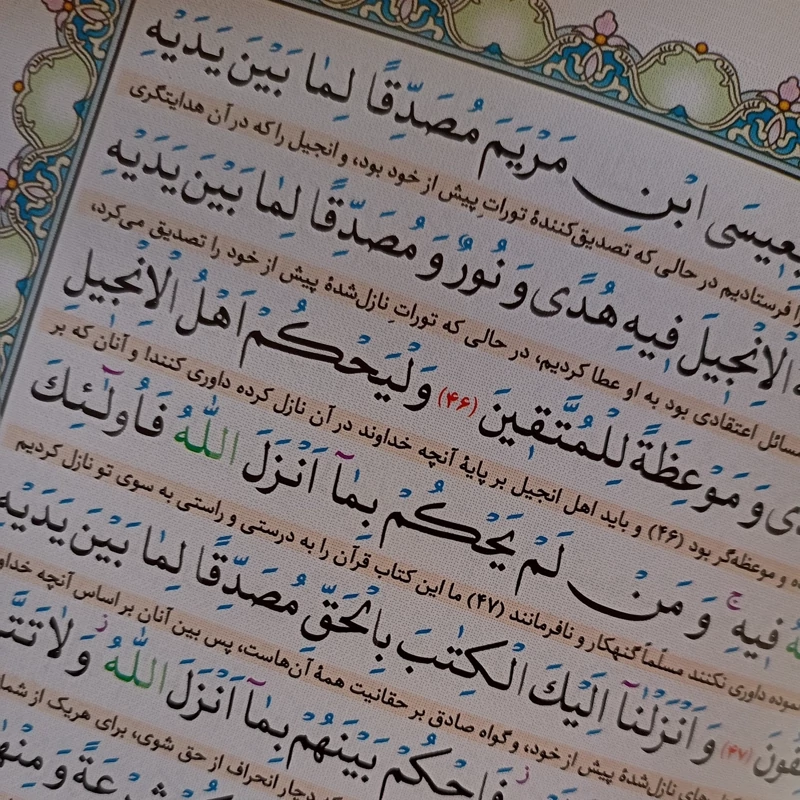 بِعِيسَى ابْنِ مَرْيَمَ مُصَدِّقًا لِمَا بَيْنَ يَدَيْهِ
را فرستادیم در حالی که تصدیق‌کنندهٔ توراتِ پیش از خود بود، و انجیل را که در آن هدایتگری
الْاِنْجِيلَ فِيهِ هُدًى وَ نُورٌ وَ مُصَدِّقًا لِمَا بَيْنَ يَدَيْهِ
مسائل اعتقادی بود به او عطا کردیم، در حالی که توراتِ نازل‌شدهٔ پیش از خود را تصدیق می‌کرد،
وَ مَوْعِظَةً لِلْمُتَّقِينَ (۴۶) وَلْيَحْكُمْ اَهْلُ الْاِنْجِيلِ
و موعظه‌گر بود (۴۶) و باید اهل انجیل بر پایهٔ آنچه خداوند در آن نازل کرده داوری کنند! و آنان که بر
فِيهِ ۚ وَ مَنْ لَمْ يَحْكُمْ بِمَآ اَنْزَلَ اللّٰهُ فَاُولٰٓئِكَ
نموده داوری نکنند مسلّماً گنهکار و نافرمانند (۴۷) ما این کتاب قرآن را به درستی و راستی به سوی تو نازل کردیم
(۴۷) وَ اَنْزَلْنَآ اِلَيْكَ الْكِتٰبَ بِالْحَقِّ مُصَدِّقًا لِمَا بَيْنَ يَدَيْهِ
نازل‌شدهٔ پیش از خود، و گواه صادق بر حقانیت همهٔ آن‌هاست، پس بین آنان بر اساس آنچه
فَاحْكُمْ بَيْنَهُمْ بِمَآ اَنْزَلَ اللّٰهُ ز وَلَا
دچار انحراف از حق شوی، برای هریک از شما
شِرْعَةً وَ